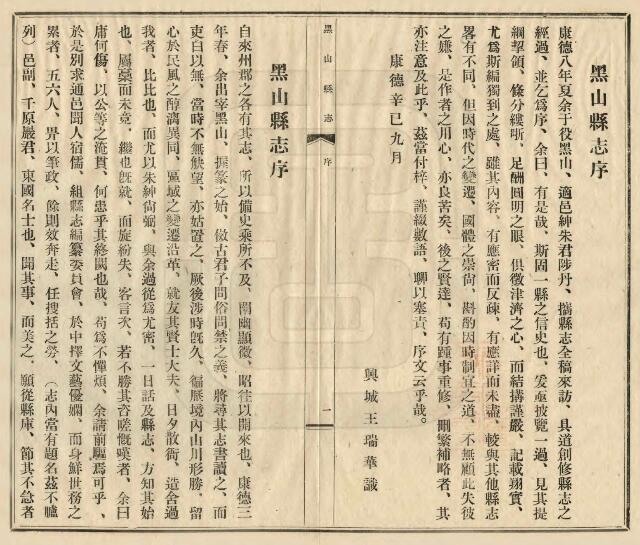 黑山縣志序
康德八年夏余于役黑山、適邑紳朱君陟丹、攜縣志全稿來訪、具道創修縣志之
經過、並乞爲序、余曰、有是哉、斯固一縣之信史也、爰亟披覽一過、見其提
綱挈領、條分縷晰、足酬圓明之眼、俱徵津濟之心、而結搆謹嚴、記載翔實、
尤爲斯編獨到之處、雖其內容、有應密而反疎、有應詳而未盡、較與其他縣志
畧有不同、但因時代之變遷、國體之崇尙、斟酌因時制宜之道、不無顧此失彼
之嫌、是作者之用心、亦良苦矣、後之賢達、苟有踵事重修、刪繁補略者、其
亦注意及此乎、茲當付梓、謹綴數語、聊以塞責、序文云乎哉。
康德辛巳九月
興城王瑞華識
黑山縣志
序
一
黑山縣志序
自來州郡之各有其志、所以備史乘所不及、闡幽顯微、昭往以開來也、康德三
年春、余出宰黑山、握篆之始、倣古君子問俗問禁之義、將尋其志書讀之、而
吏白以無、當時不無觖望、亦姑置之、厥後涉時旣久、徧厯境內山川形勝、留
心於民風之醇漓異同、區域之變遷沿革、就友其賢士大夫、日夕散衙、造舍過
我者、比比也、而尤以朱紳尙弼、與余過從爲尤密、一日話及縣志、方知其始
也、屬藁而未竟、繼也旣就、而旋紛失、客言次、若不勝其咨嗟慨嘆者、余曰
庸何傷、以公等之淹貫、何患乎其終闕也哉、苟爲不憚煩、余請前驅焉可乎、
於是別求通邑聞人宿儒、組縣志編纂委員會、於中擇文藝優嫻、而身鮮世務之
累者、五六人、畀以筆政、餘則效奔走、任搜括之勞、（志內當有題名茲不臚
列）邑副、千原嚴君、東國名士也、聞其事、而美之、願從縣庫、節其不急者